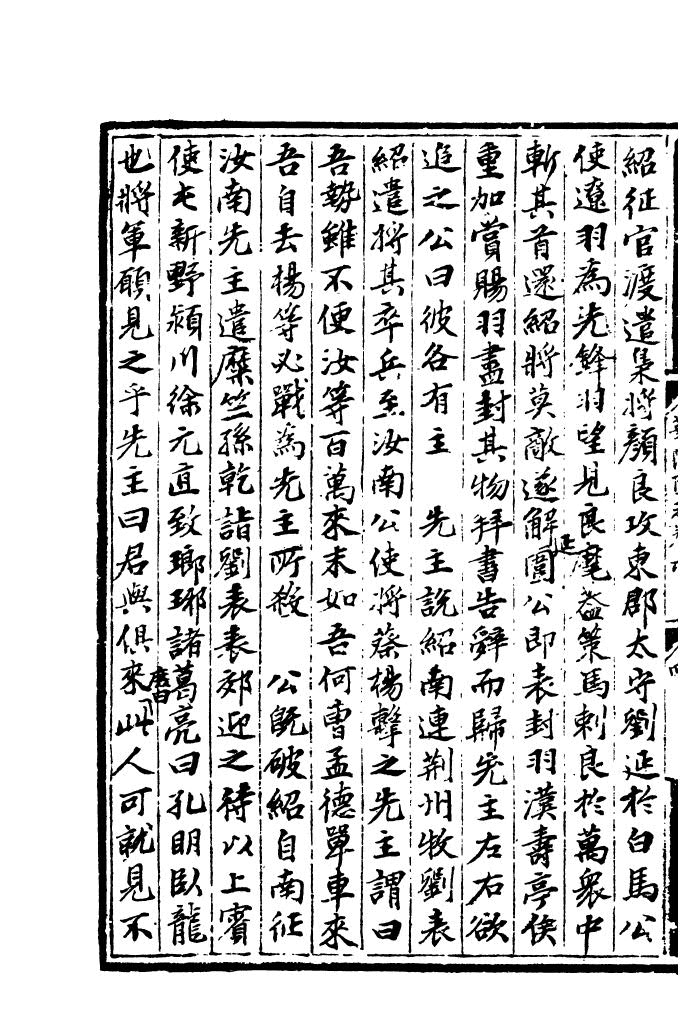 紹征官渡遣梟將顏良攻東郡太守劉延於白馬公
使遼羽為先鋒羽望見良麾蓋策馬刺良於萬衆中
斬其首還紹將莫敵遂解延圍公即表封羽漢壽亭侯
重加賞賜羽盡封其物拜書告辭而歸先主左右欲
追之公曰彼各有主　先主說紹南連荆州牧劉表
紹遣將其卒兵至汝南公使將蔡楊擊之先主謂曰
吾勢雖不便汝等百萬來未如吾何曹孟德單車來
吾自去楊等必戰為先主所殺　公既破紹自南征
汝南先主遣糜竺孫乾詣劉表表郊迎之待以上賓
使屯新野潁川徐元直致瑯琊諸葛亮曰孔明臥龍
也將軍願見之乎先主曰君與俱來庶曰此人可就見不